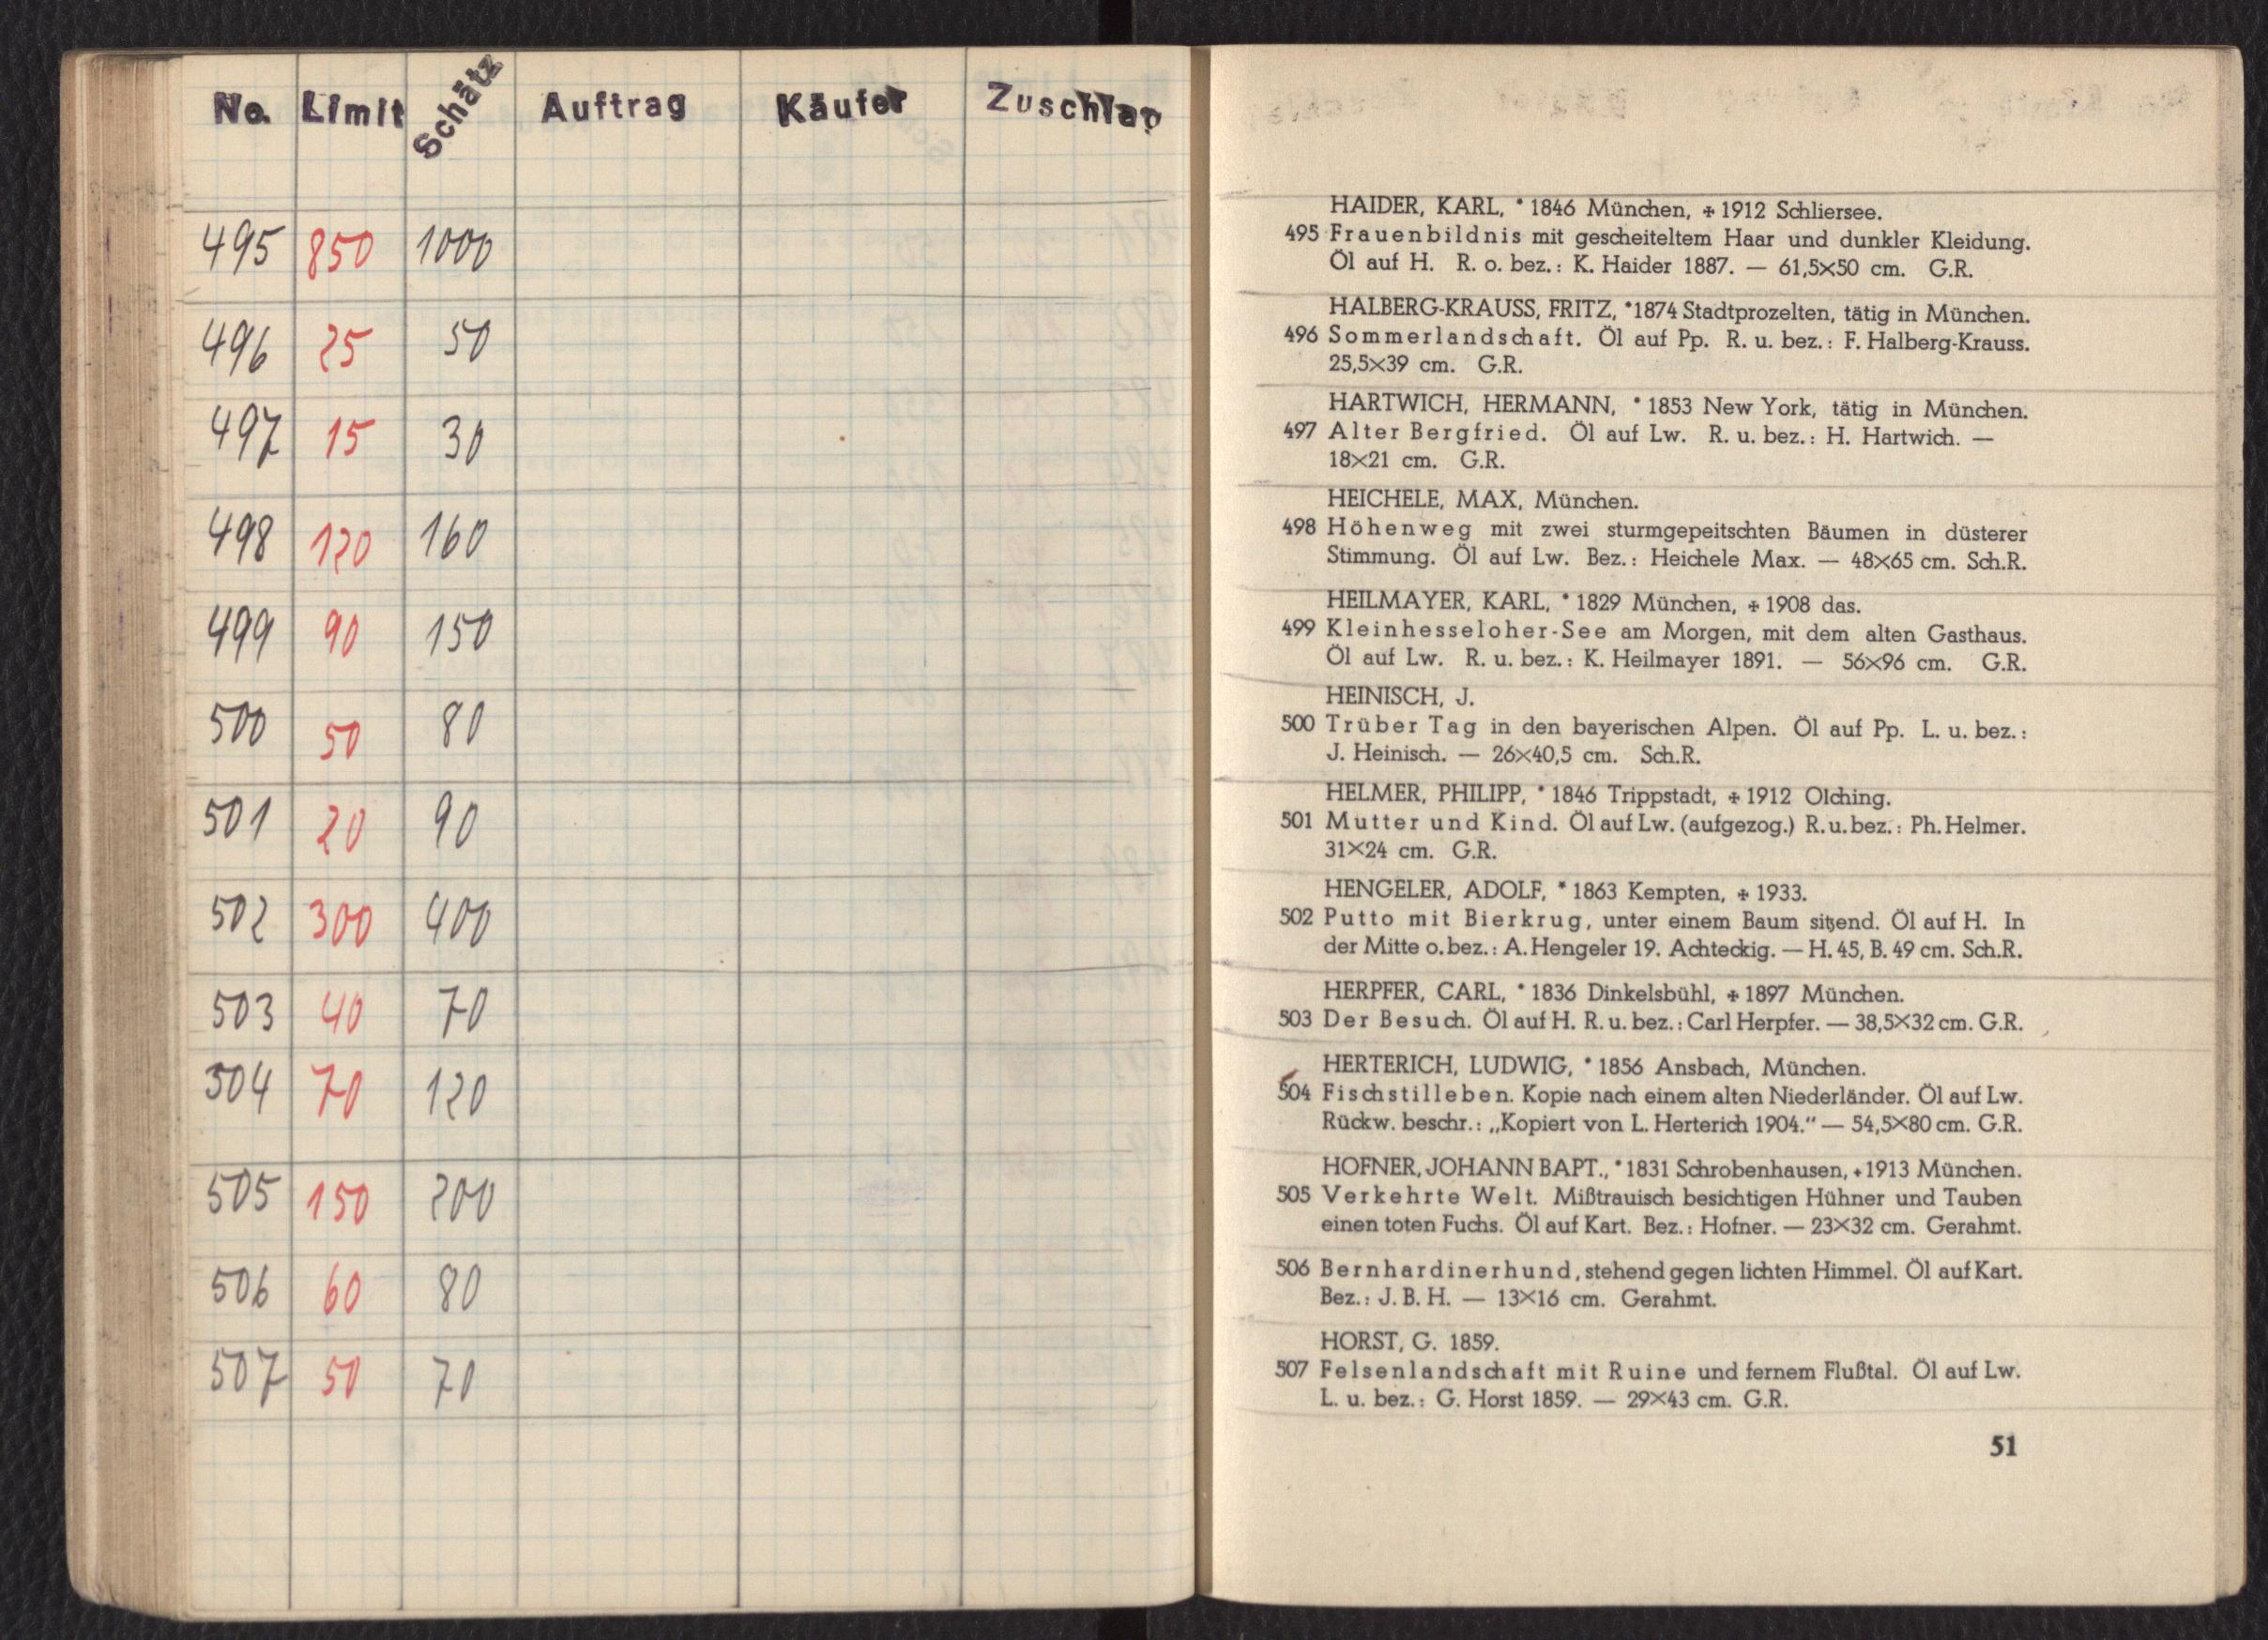 No. Limit Schätz Auftrag Käufer Zuschlag
495 850 1000
496 25 50
497 15 30
498 120 160
499 90 150
500 50 80
501 20 90
502 300 400
503 40 70
504 70 120
505 150 200
506 60 80
507 50 70
HAIDER, KARL, * 1846 München, ✠ 1912 Schliersee.
495 Frauenbildnis mit gescheiteltem Haar und dunkler Kleidung.
Öl auf H. R. o. bez.: K. Haider 1887. — 61,5×50 cm. G.R.
HALBERG-KRAUSS, FRITZ, *1874 Stadtprozelten, tätig in München.
496 Sommerlandschaft. Öl auf Pp. R. u. bez.: F. Halberg-Krauss.
25,5×39 cm. G.R.
HARTWICH, HERMANN, * 1853 New York, tätig in München.
497 Alter Bergfried. Öl auf Lw. R. u. bez.: H. Hartwich. —
18×21 cm. G.R.
HEICHELE, MAX, München.
498 Höhenweg mit zwei sturmgepeitschten Bäumen in düsterer
Stimmung. Öl auf Lw. Bez.: Heichele Max. — 48×65 cm. Sch.R.
HEILMAYER, KARL, * 1829 München, ✠ 1908 das.
499 Kleinhesseloher-See am Morgen, mit dem alten Gasthaus.
Öl auf Lw. R. u. bez.: K. Heilmayer 1891. — 56×96 cm. G.R.
HEINISCH, J.
500 Trüber Tag in den bayerischen Alpen. Öl auf Pp. L. u. bez.:
J. Heinisch. — 26×40,5 cm. Sch.R.
HELMER, PHILIPP, * 1846 Trippstadt, ✠ 1912 Olching.
501 Mutter und Kind. Öl auf Lw. (aufgezog.) R. u. bez.: Ph. Helmer.
31×24 cm. G.R.
HENGELER, ADOLF, * 1863 Kempten, ✠ 1933.
502 Putto mit Bierkrug, unter einem Baum sitzend. Öl auf H. In
der Mitte o. bez.: A. Hengeler 19. Achteckig. — H. 45, B. 49 cm. Sch.R.
HERPFER, CARL, * 1836 Dinkelsbühl, ✠ 1897 München.
503 Der Besuch. Öl auf H. R. u. bez.: Carl Herpfer. — 38,5×32 cm. G.R.
HERTERICH, LUDWIG, * 1856 Ansbach, München.
504 Fischstilleben. Kopie nach einem alten Niederländer. Öl auf Lw.
Rückw. beschr.: „Kopiert von L. Herterich 1904.“ — 54,5×80 cm. G.R.
HOFNER, JOHANN BAPT., *1831 Schrobenhausen, ✠1913 München.
505 Verkehrte Welt. Mißtrauisch besichtigen Hühner und Tauben
einen toten Fuchs. Öl auf Kart. Bez.: Hofner. — 23×32 cm. Gerahmt.
506 Bernhardinerhund, stehend gegen lichten Himmel. Öl auf Kart.
Bez.: J. B. H. — 13×16 cm. Gerahmt.
HORST, G. 1859.
507 Felsenlandschaft mit Ruine und fernem Flußtal. Öl auf Lw.
L. u. bez.: G. Horst 1859. — 29×43 cm. G.R.
51